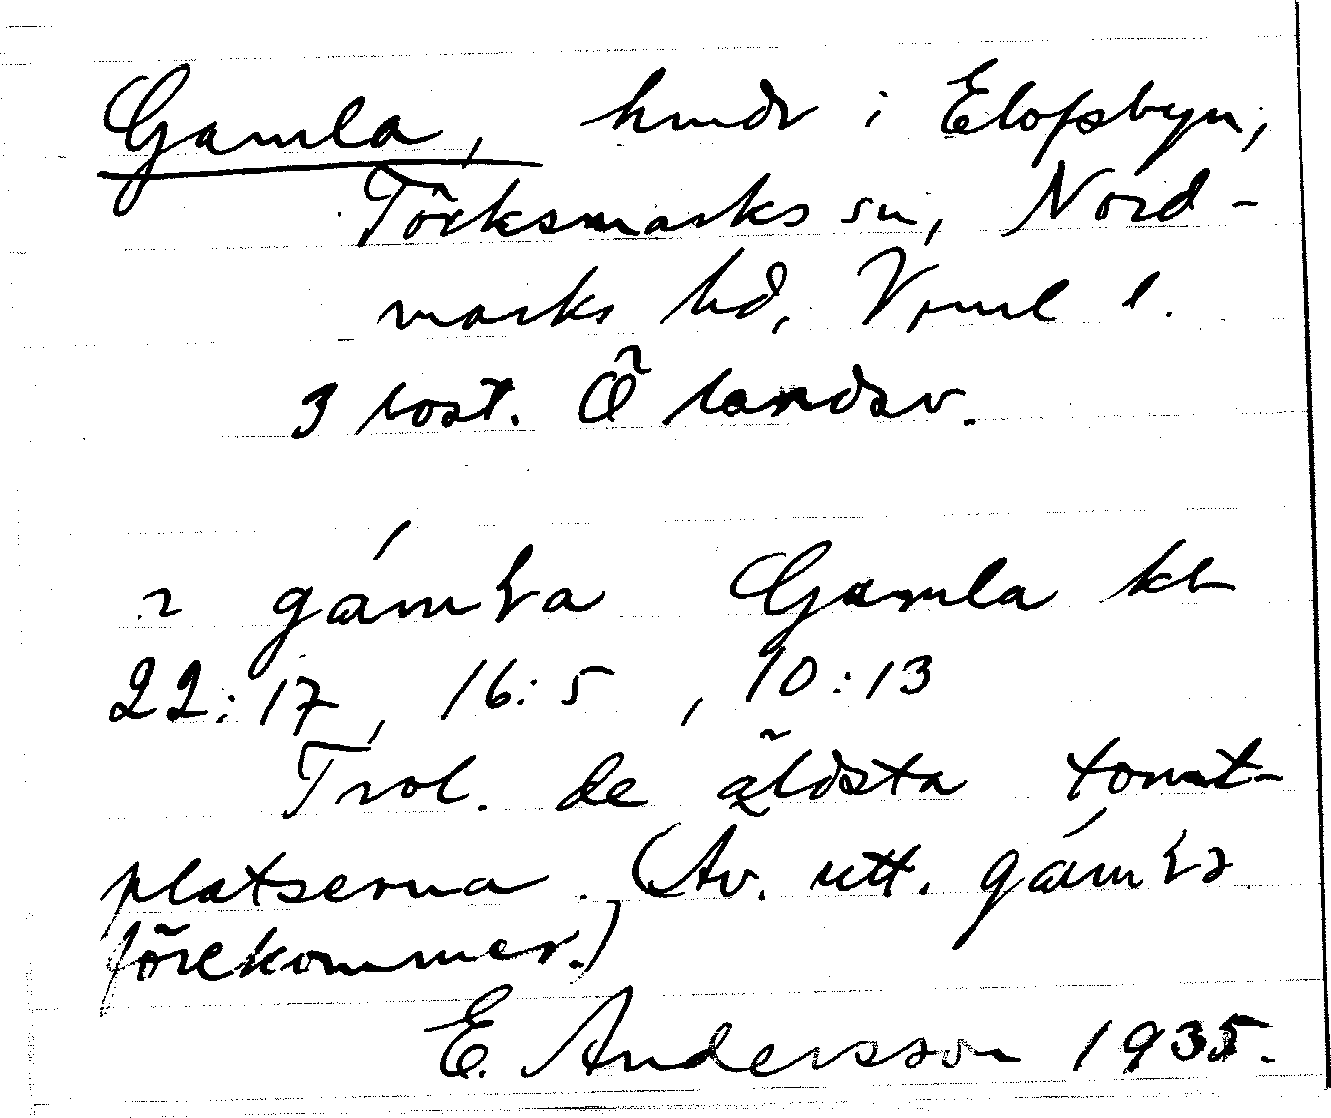 Gamla, hmdr i Elofsbyn,
Töcksmarks sn, Nord-
marks hd, Vrml l.
3 bost. Ö landsv.
gám̀ɽa Gamla kt
22:17, 16:5, 10:13
Trol. de äldsta tomt-
platserna. (Av. utt. gám̀ɽə
förekommer.)
E. Andersson 1935.